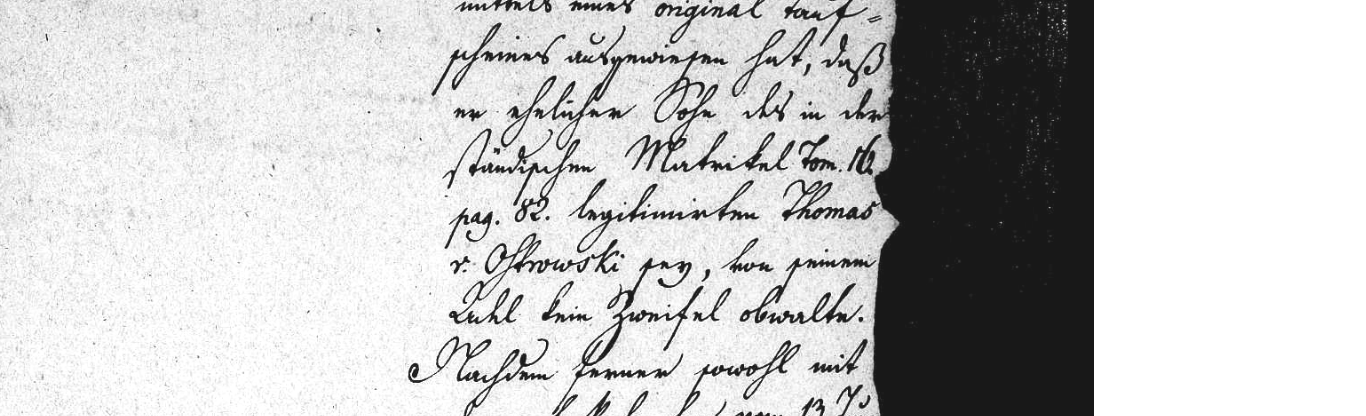 mittels eines original Tauf=
scheines ausgewiesen hat, daß
er ehelicher Sohn des in der
ständischen Matrikel Tom. 16.
pag. 82. legitimirten Thomas
v. Ostrowski sey, von seinem
Adel kein Zweifel obwalte.
Nachdem ferner sowohl mit
vom 13